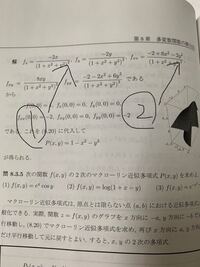 第8章 多変数関数の微分
解 f_x = -2x / (1 + x² + y²)², f_y = -2y / (1 + x² + y²)², f_xx = -2 + 6x² - 2y² / (1 + x² + y²)³
f_xy = 8xy / (1 + x² + y²)³, f_yy = -2 - 2x² + 6y² / (1 + x² + y²)³ である
から
f(0,0) = 1, f_x(0,0) = 0, f_y(0,0) = 0,
f_xx(0,0) = -2, f_xy(0,0) = 0, f_yy(0,0) = -2
2
である. これを (8.20) に代入して
P(x, y) = 1 - x² - y²
が得られる.
問 8.3.5 次の関数 f(x, y) の2次のマクローリン近似多項式 P(x, y) を求めよ
(1) f(x, y) = eˣ cos y (2) f(x, y) = log(1 + x - y) (3)
マクローリン近似多項式は, 原点とは限らない点 (a, b) における近似多項式に
般化できる. 実際, 関数 z = f(x, y) のグラフを x 方向に -a, y 方向に -b
行移動し, (8.20) でマクローリン近似多項式を求め, 再び x 方向に a, y 方向に
だけ平行移動して元に戻すとよい. すると, x, y の2次の多項式